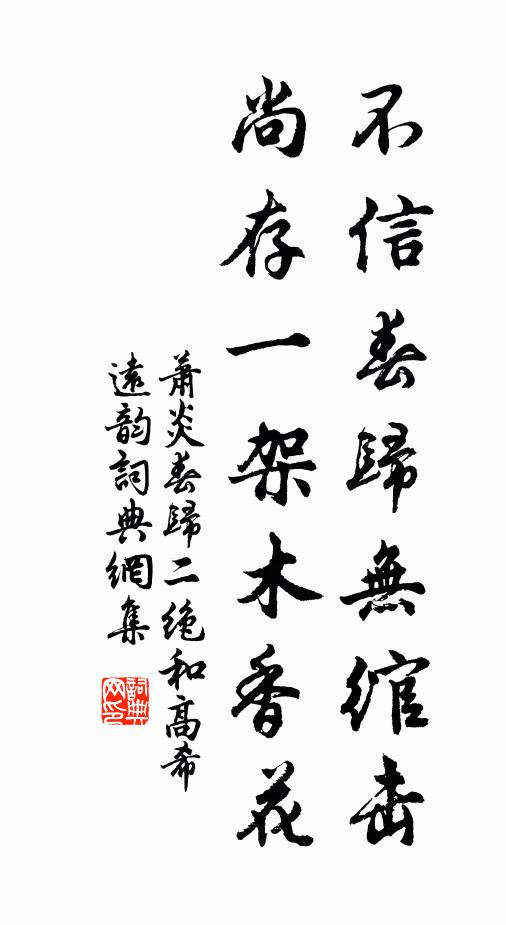 不信春歸無綰击
尚存一架木香花
萧炎春歸二絶和高希
遠韵詞典網集
詞典网印